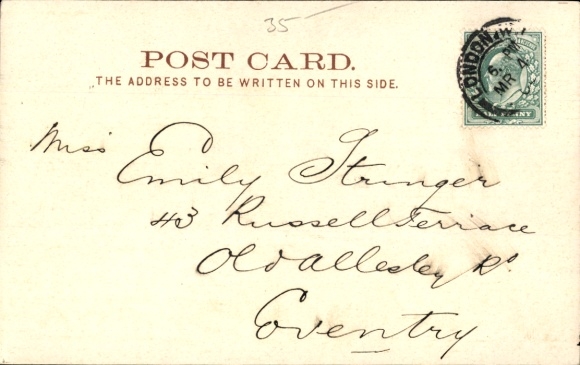 35
POST CARD.
THE ADDRESS TO BE WRITTEN ON THIS SIDE.
LONDON
6. PM
MR 4
HALFPENNY
Miss Emily Stringer
43 Russell Terrace
Old Allesley Rd
Coventry